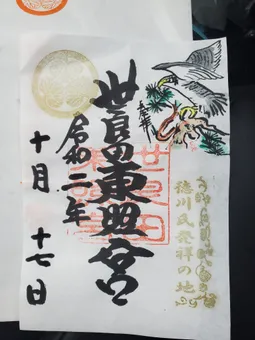 徳川氏発祥の地
奉拝
世良田東照宮
令和二年
十月十七日